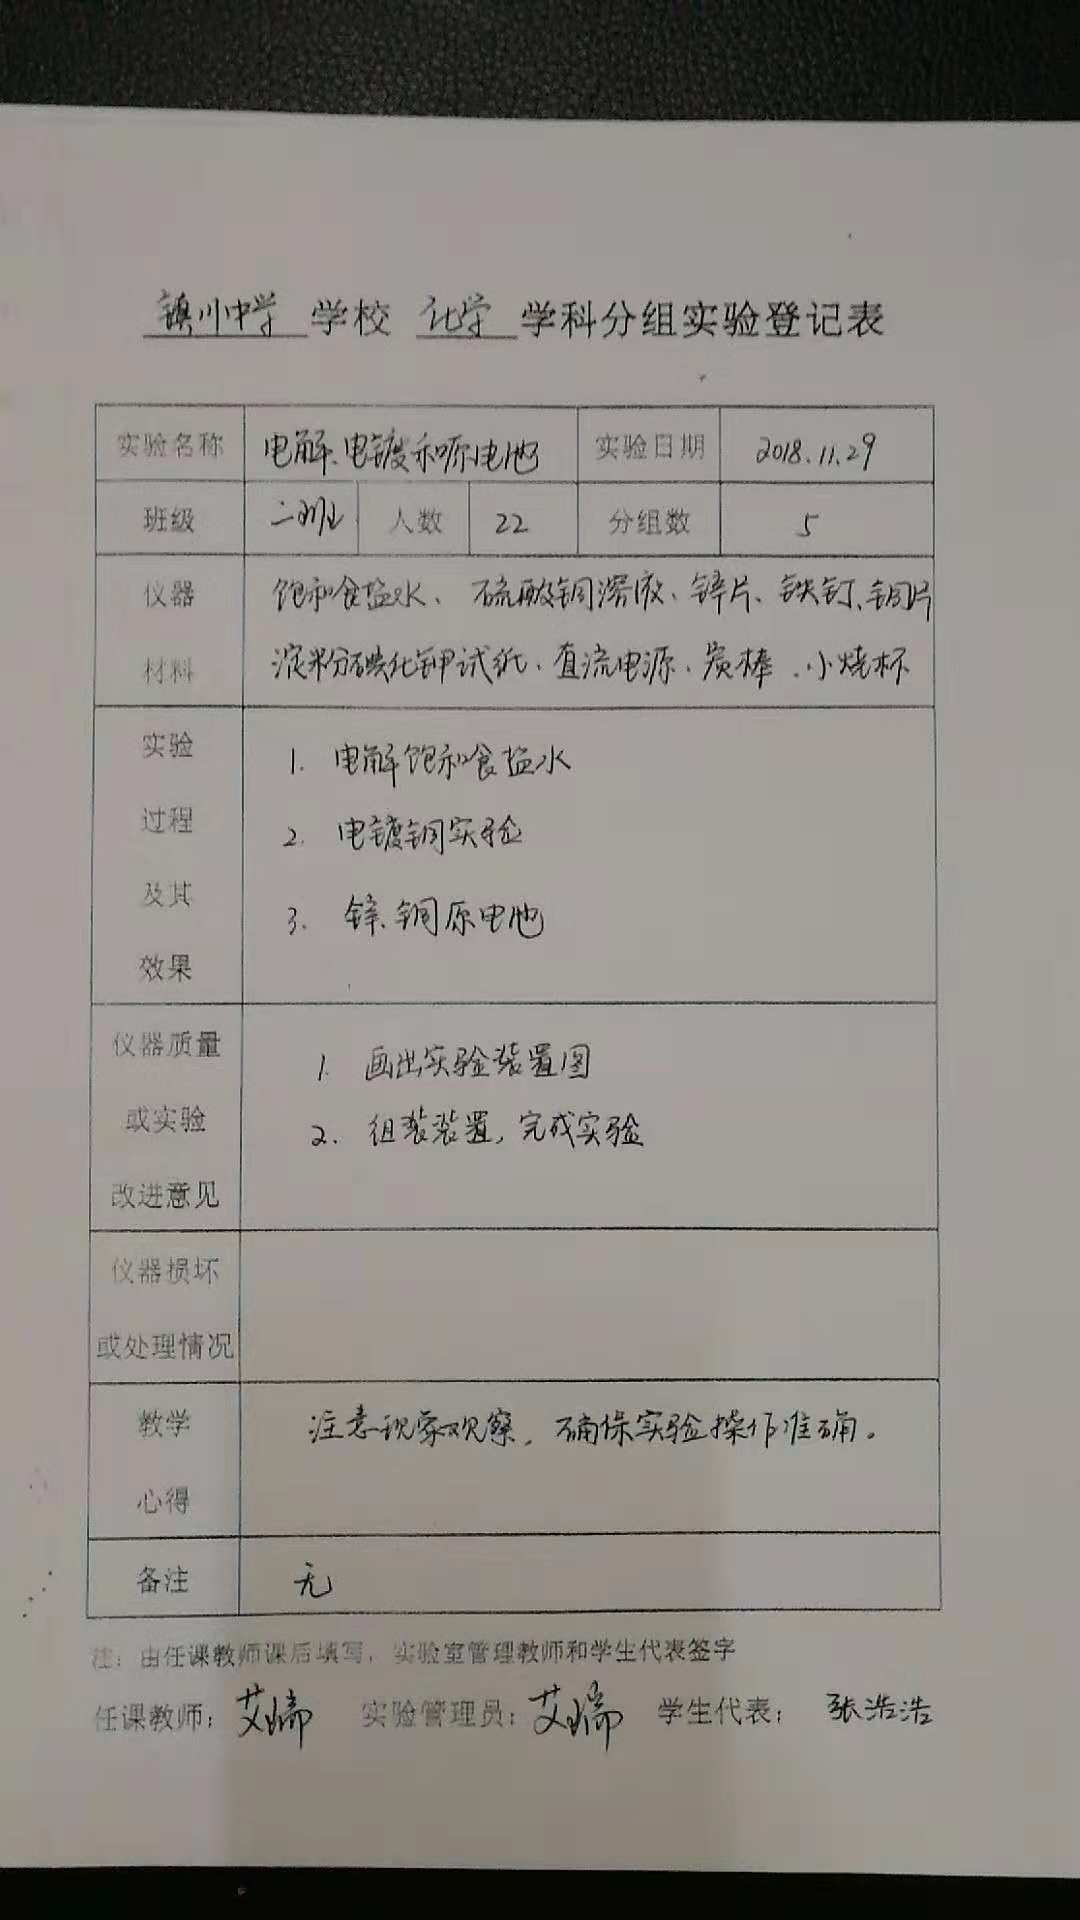 镇川中学 学校 化学 学科分组实验登记表
实验名称 电解、电镀和原电池 实验日期 2018.11.29
班级 二班 人数 22 分组数 5
仪器 饱和食盐水、硫酸铜溶液、锌片、铁钉、铜片
材料 淀粉碘化钾试纸、直流电源、炭棒、小烧杯
实验
1. 电解饱和食盐水
过程
2. 电镀铜实验
及其
3. 锌、铜原电池
效果
仪器质量
1. 画出实验装置图
或实验
2. 组装装置,完成实验
改进意见
仪器损坏
或处理情况
教学 注意现象观察,确保实验操作准确。
心得
备注 无
注：由任课教师课后填写，实验室管理教师和学生代表签字
任课教师：艾瑞 实验管理员：艾瑞 学生代表：张浩浩